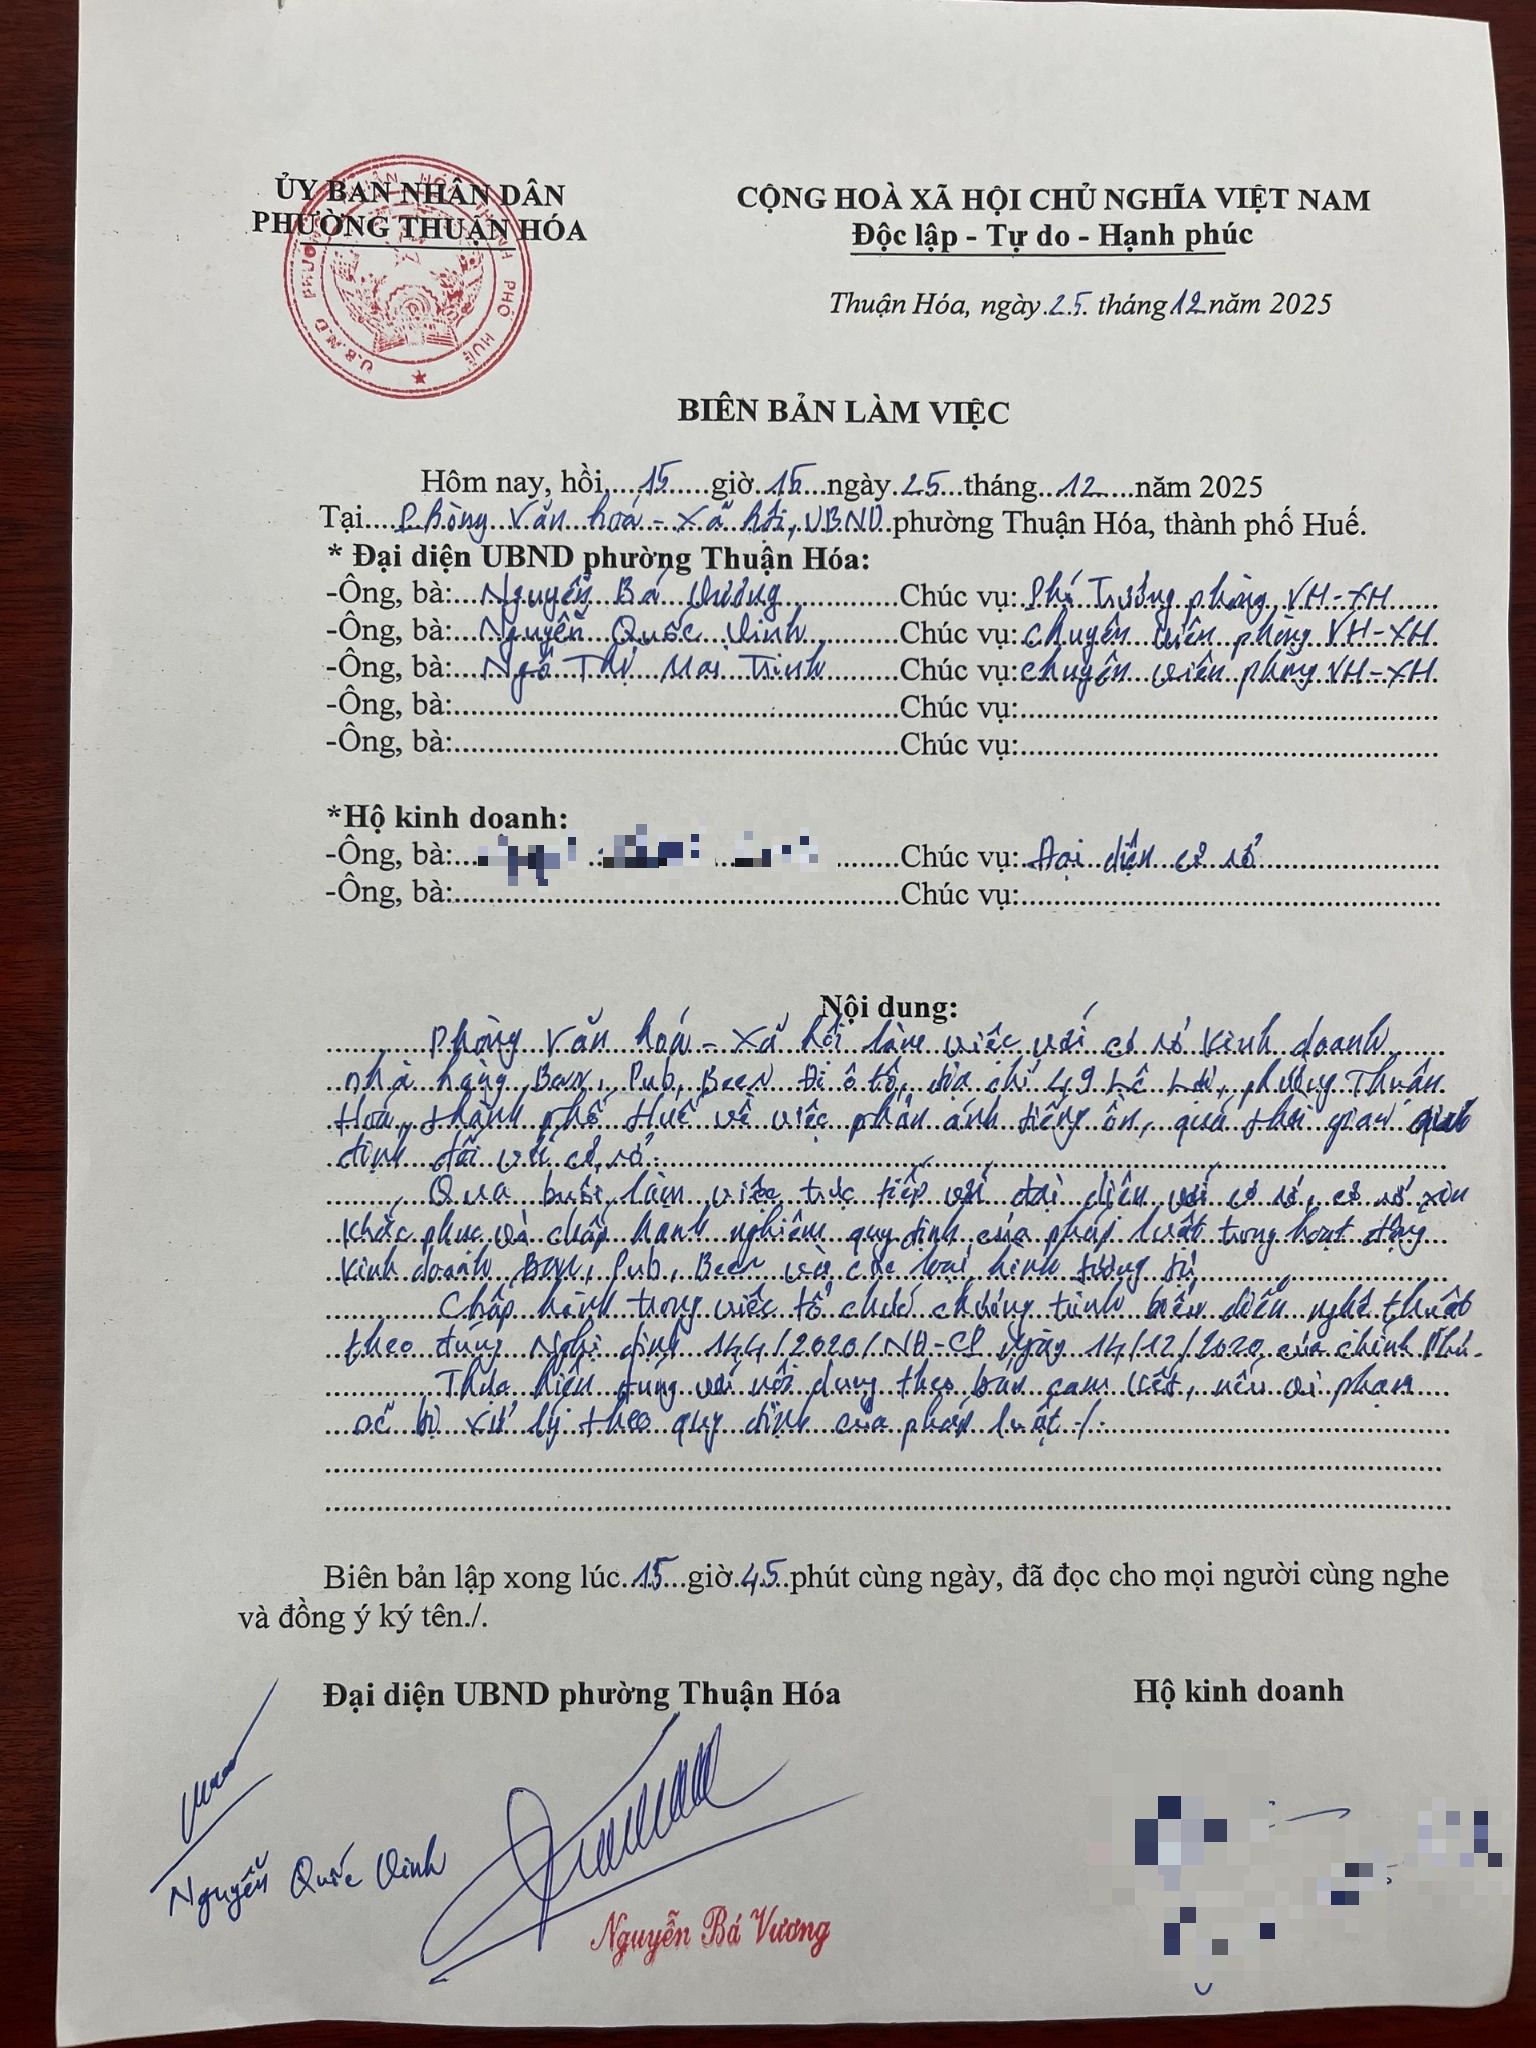 ỦY BAN NHÂN DÂN
PHƯỜNG THUẬN HÓA
CỘNG HOÀ XÃ HỘI CHỦ NGHĨA VIỆT NAM
Độc lập - Tự do - Hạnh phúc
Thuận Hóa, ngày 25 tháng 12 năm 2025
BIÊN BẢN LÀM VIỆC
Hôm nay, hồi 15 giờ 15 ngày 25 tháng 12 năm 2025
Tại Phòng Văn hoá - Xã hội, UBND phường Thuận Hóa, thành phố Huế.
* Đại diện UBND phường Thuận Hóa:
-Ông, bà: Nguyễn Bá Vương Chúc vụ: Phó Trưởng phòng VH-XH
-Ông, bà: Nguyễn Quốc Vinh Chúc vụ: Chuyên viên phòng VH-XH
-Ông, bà: Ngô Thị Mai Trinh Chúc vụ: Chuyên viên phòng VH-XH
-Ông, bà: Chúc vụ:
-Ông, bà: Chúc vụ:
*Hộ kinh doanh:
-Ông, bà: Chúc vụ: Đại diện cơ sở
-Ông, bà: Chúc vụ:
Nội dung:
Phòng Văn hoá - Xã hội làm việc với cơ sở kinh doanh
nhà hàng Bar, Pub, Beer Đi ô tô, địa chỉ 49 Lê Lợi, phường Thuận
Hoá, thành phố Huế về việc phản ánh tiếng ồn, quá thời gian quy
định đối với cơ sở.
Qua buổi làm việc trực tiếp với đại diện với cơ sở, cơ sở xin
khắc phục và chấp hành nghiêm quy định của pháp luật trong hoạt động
kinh doanh Bar, Pub, Beer và các loại hình tương tự
Chấp hành trong việc tổ chức chương trình biểu diễn nghệ thuật
theo đúng Nghị định 144/2020/NĐ-CP ngày 14/12/2020 của Chính Phủ.
Thực hiện đúng với nội dung theo bản cam kết, nếu vi phạm
sẽ bị xử lý theo quy định của pháp luật./.
Biên bản lập xong lúc 15 giờ 45 phút cùng ngày, đã đọc cho mọi người cùng nghe
và đồng ý ký tên./.
Đại diện UBND phường Thuận Hóa
Hộ kinh doanh
Nguyễn Quốc Vinh
Nguyễn Bá Vương